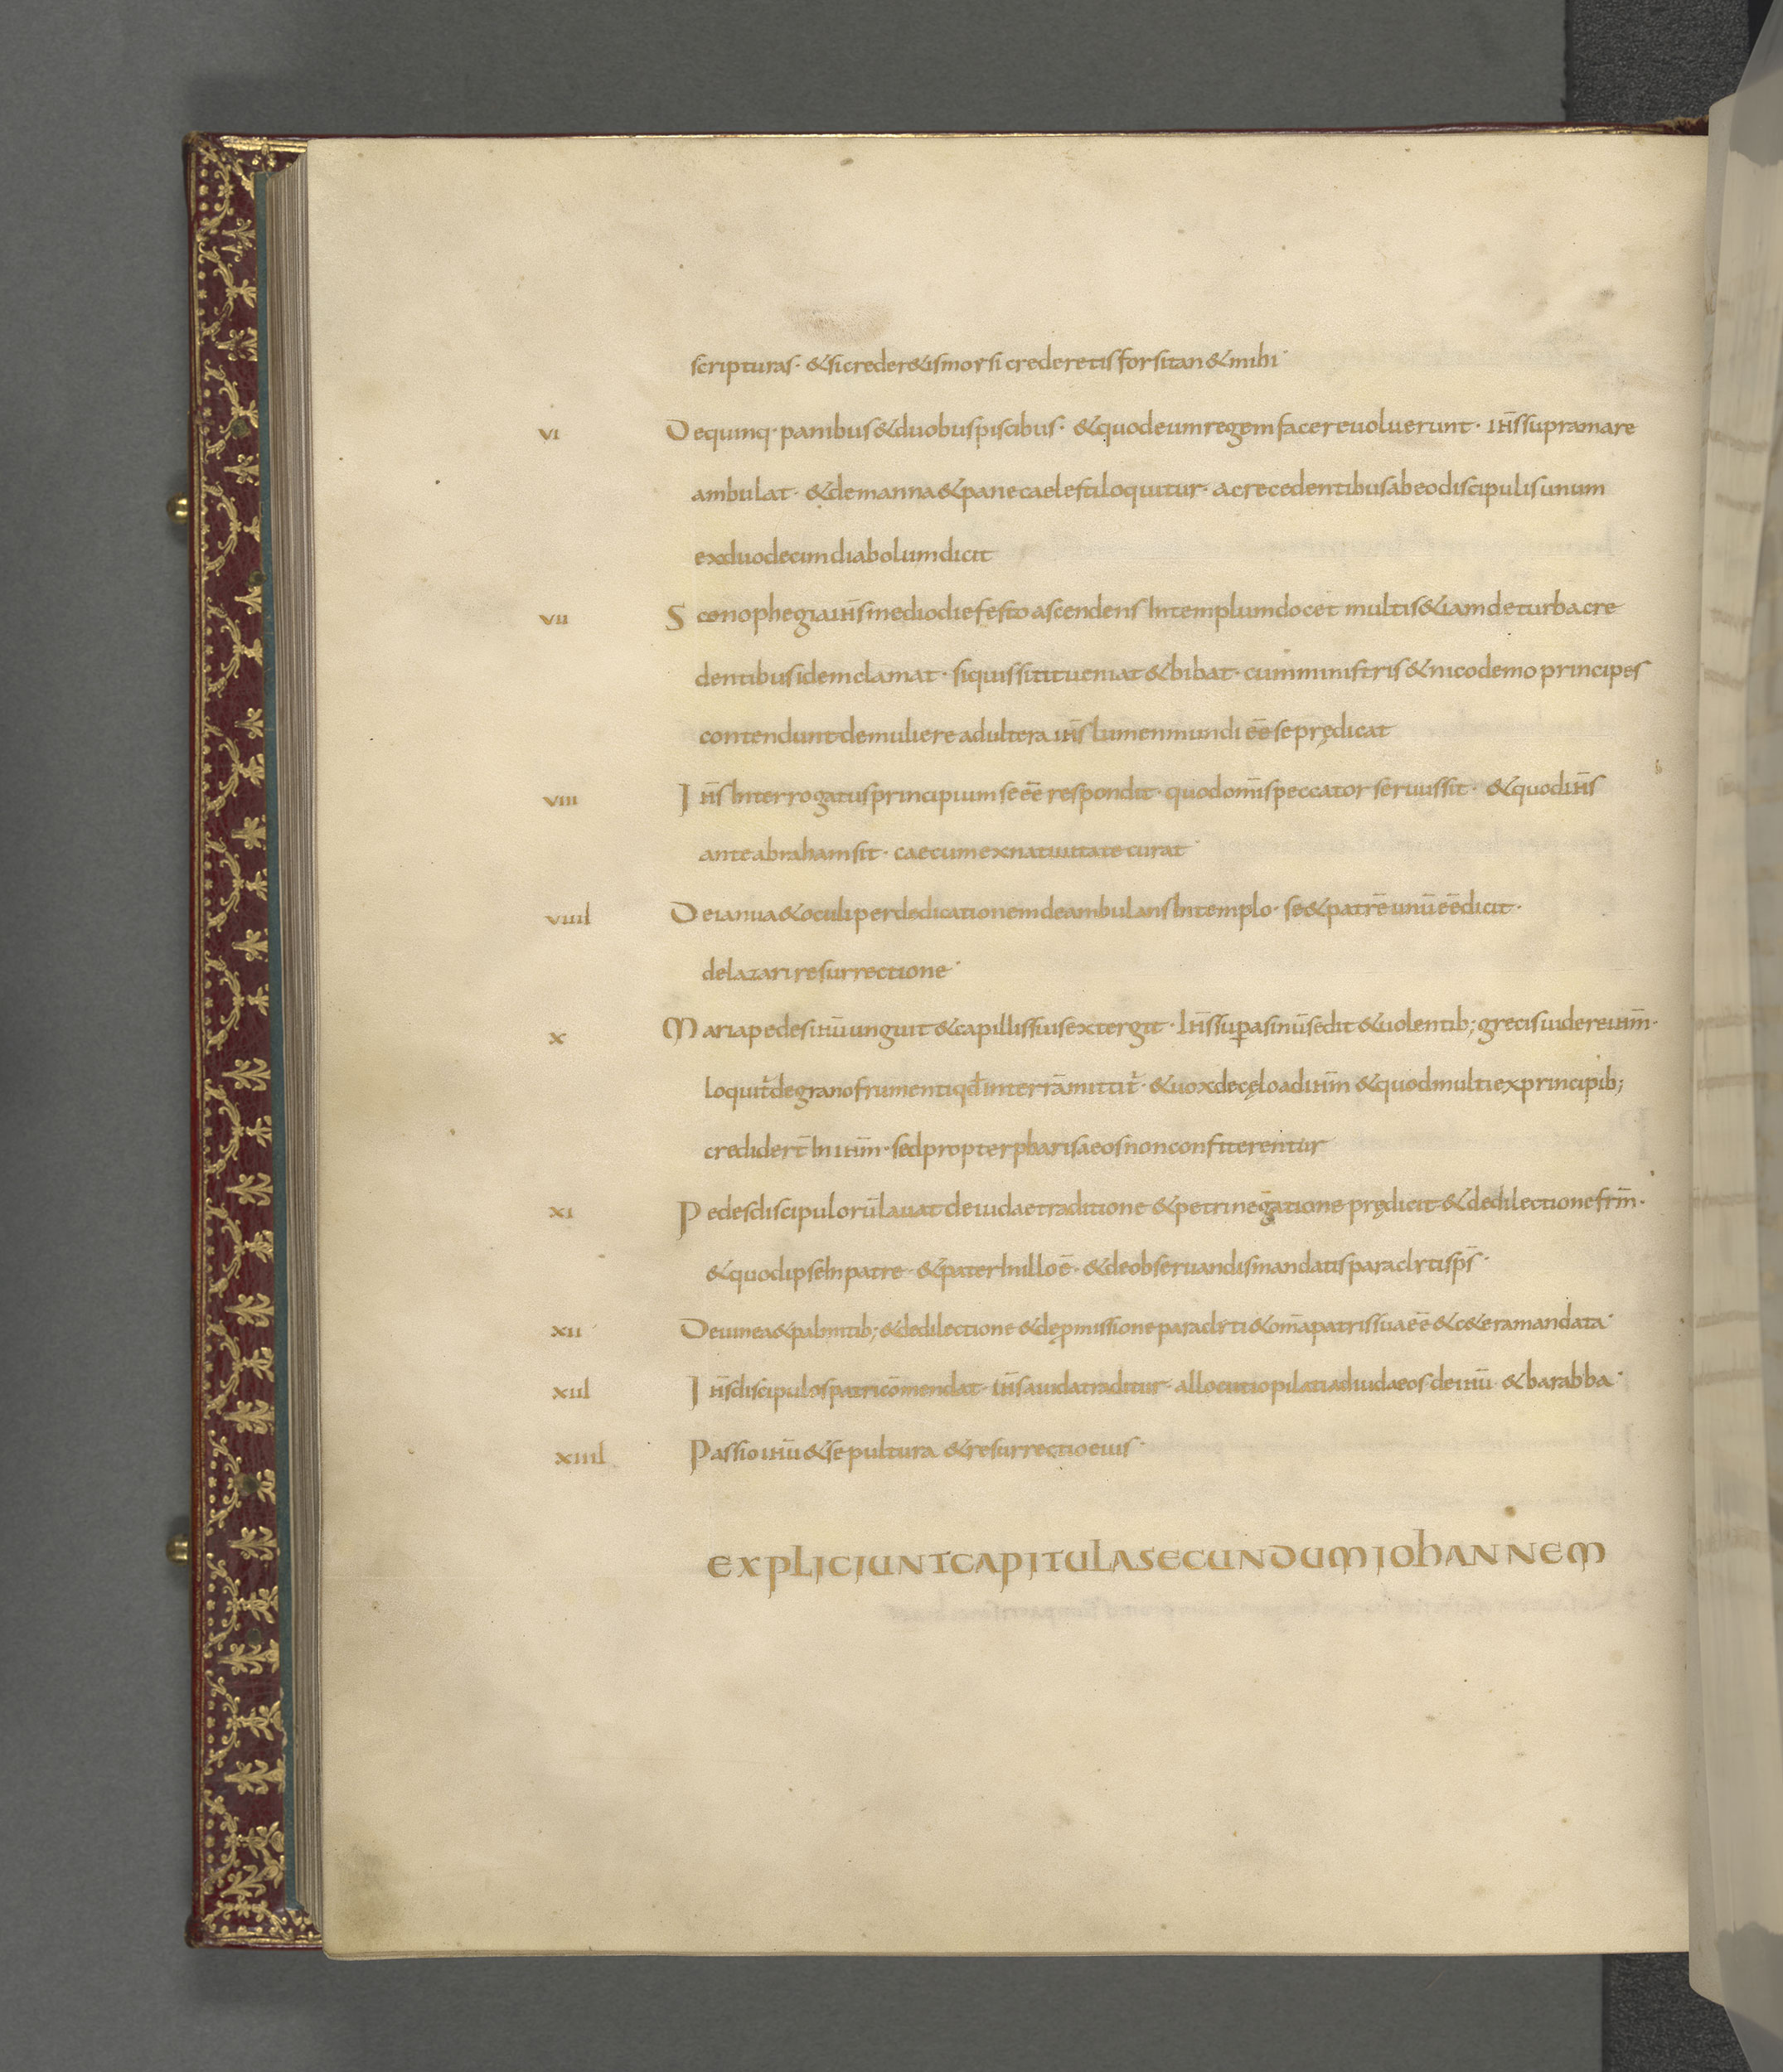 scripturas · & si creder&is mosi crederetis forsitan & mihi ·
VI De quinq · panibus & duobus piscibus · & quod eum regem facere uoluerunt · ih̅s supra mare
ambulat · & de manna & pane caelesti loquitur · ac recedentibus ab eo discipulis unum
ex duodecim diabolum dicit
VII Scenophegia ih̅s medio die festo ascendens in templum docet multis &iam de turba cre
dentibus idem clamat · si quis sitit ueniat & bibat · cum ministris & nicodemo principes
contendunt de muliere adultera ih̅s lumen mundi ee̅ se prędicat
VIII Ih̅s interrogatus principium se ee̅ respondit · quod om̅s peccator seruus sit · & quod ih̅s
ante abraham sit · caecum ex natiuitate curat ·
VIIII De ianua & oculi per dedicationem deambulans in templo · se & patre̅ unu̅ ee̅ dicit ·
de lazari resurrectione ·
X Maria pedes ihu̅ unguit & capillis suis extergit · ih̅s sup̅ asinu̅ sedit & uolentib; grecis uidere ihm̅ ·
loquit̅ de grano frumenti qd̅ in terra̅ mittit̅ · & uox de cęlo ad ihm̅ & quod multi ex principib;
credider̅t in ihm̅ · sed propter pharisaeos non confiterentur
XI Pedes discipuloru̅ lauat de iudae traditione & petri negatione prędicit & de dilectione frm̅ ·
& quod ipse in patre & pater in illo e̅ · & de obseruandis mandatis paraclyti sps̅ ·
XII De uinea & palmitib; & de dilectione & de p̲missione paraclyti & om̅a patris sua ee̅ & c&era mandata ·
XIII Ih̅s discipulos patri co̅mendat · ih̅s a iuda traditur · allocutio pilati ad iudaeos de ihu̅ & barabba ·
XIIII Passio ihu̅ & sepultura & resurrectio eius ·
EXPLICIUNT CAPITULA SECUNDUM IOHANNEM